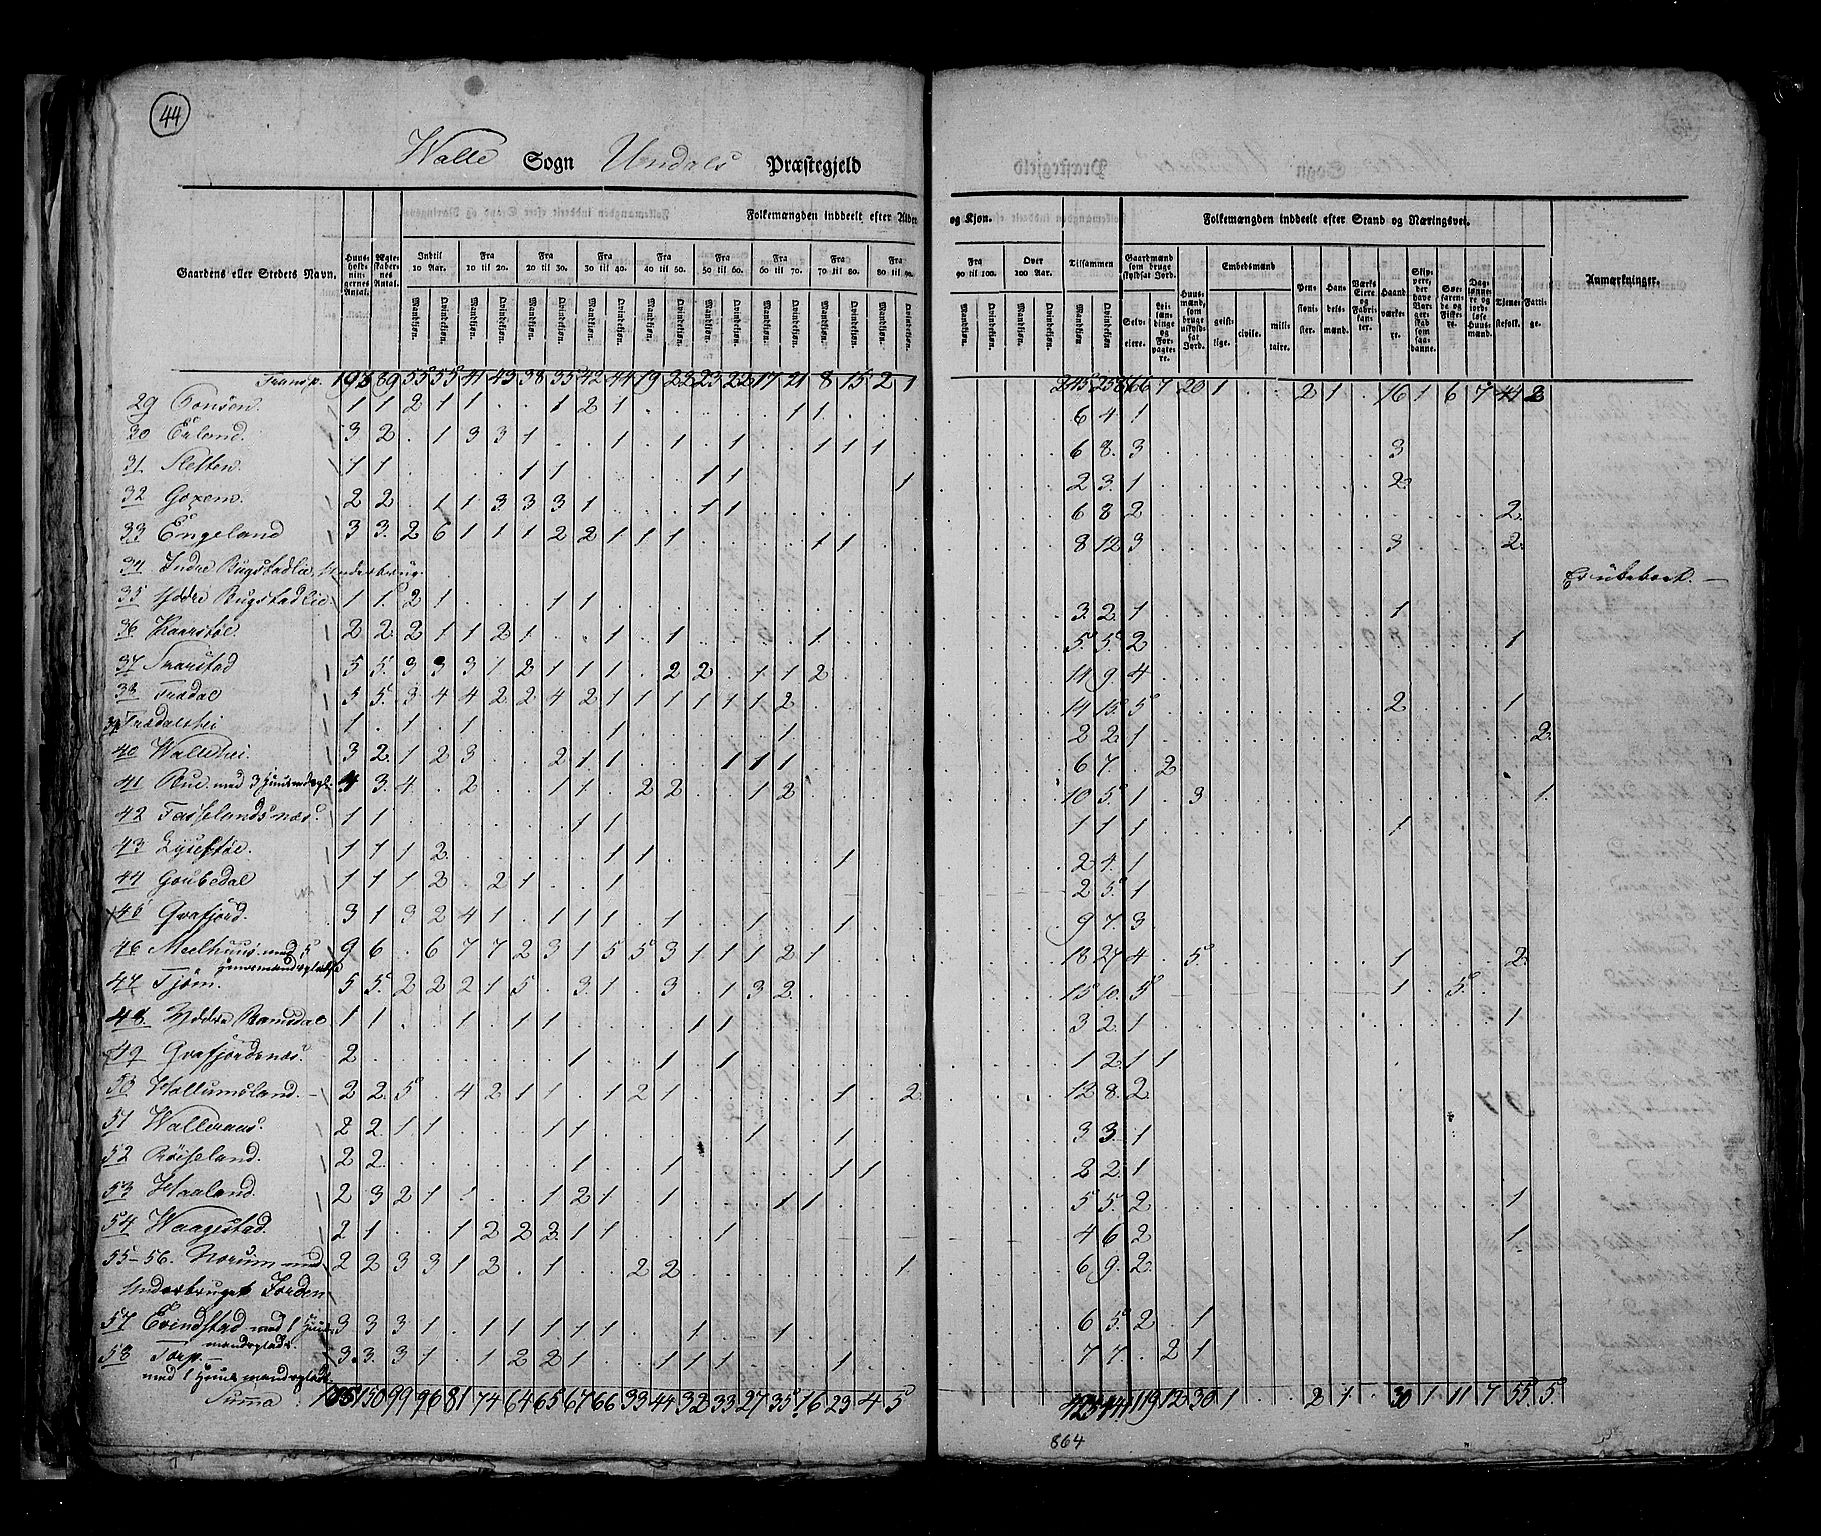 44
Walle Sogn Undals Præstegjeld
Gaardens eller Stedets Navn.
Huusholdningernes Antal.
Ægteskabernes Antal.
Folkemængden inddeelt efter Alder og Kjøn.
Indtil 10 Aar. Fra 10 til 20. Fra 20 til 30. Fra 30 til 40. Fra 40 til 50. Fra 50 til 60. Fra 60 til 70. Fra 70 til 80. Fra 80 til 90. Fra 90 til 100. Over 100 Aar. Tilsammen
Mandkjøn. Qvindekjøn.
Folkemængden inddeelt efter Stand og Næringsvei.
Gaardmænd som bruge skyldsat Jord.
Selveiere. Leilændinge og Forpagtere.
Huusmænd, som bruge uskyldsat Jord.
Embedsmænd
geistlige. civile. militaire.
Pensionister. Handelsmænd. Værks Eiere og Fabrikanter. Haandværkere. Skippere, der have Borgerskab som saadanne. Søefarende og Fiskere. Daglønnere og jordløse Huusmænd. Tjenestefolk. Fattige.
Anmærkninger.
Transp. 89 55 55 41 43 38 35 42 44 19 22 23 22 17 21 8 15 2 1 7 20 1 2 1 16 1 6 7 44
29 1 1 2 1 1 . . 1 2 1 1 1 6 4 1
30 Eiland. 3 2 . 1 3 3 1 . . 1 . 1 . 1 . . 1 1 1 6 8 3 3
31 Sletten. 1 1 1 1 1 1 1 2 3 1 2
32 2 2 . 1 1 3 3 3 1 1 1 6 8 2 2
33 Engeland 3 3 2 6 1 1 1 2 2 1 1 1 1 1 8 12 3 3 2
34 Indre Bugstadlie, Underbrug.
35 Yddre Bugstadlie 1 1 2 1 1 1 3 2 1 1
36 Kaarstøe 2 2 2 1 1 2 1 . . 1 . 1 1 5 5 2 1
37 Snarstad 5 5 3 3 3 1 2 1 1 1 . 2 2 . 1 1 2 14 9 4
38 Trædal 5 5 3 4 4 2 2 4 2 1 1 1 1 1 1 2 14 15 5 2 1
39 Trædalshei 1 . 1 . 1 1 1 2 2 1 2
40 Wallehei. 3 2 1 2 3 . . 2 1 1 1 1 1 6 7 . 2
41 Bue med 3 Huusmdspl. 4 3 4 . 2 . . 1 1 . 2 2 . . 1 2 10 5 1 . 3 1
42 1 1 1 1 1 1 1 1
43 Lysestøe. 1 1 1 2 1 1 1 2 4 1
44 Goubedal 1 1 1 2 . 2 1 . . 1 2 5 1
45 Qvafjord. 3 1 3 2 4 1 . 1 1 1 . 1 . . 1 . . 1 9 7 3
46 Meelhuus med 5 9 6 . 6 7 7 2 3 1 5 5 3 1 1 1 2 1 18 27 4 . 5 1 2
Huusmandspladse
47 Tjøm. 5 5 2 2 2 1 5 . 3 1 . 3 . 1 3 2 15 10 5 1 . 5
48 Yddre Ramsdal 1 1 . . 1 . 1 1 1 1 3 2 1 1
49 Qvafjordnæs. 2 1 . . 1 . 1 1 2 1 1
50 Hallumsland. 2 2 5 . 4 2 1 1 . 1 2 1 1 . 2 12 8 2
51 Wallenæs. 2 2 1 1 1 1 1 1 3 3 1
52 Røiseland. 2 2 1 1 1 1 2 2 1
53 Haaland. 2 3 2 1 1 2 1 . 1 1 1 5 5 2 1
54 Waagestad 2 1 . . 1 2 2 2 1 1 1 4 6 2 1
55-56. Norum med 2 2 3 3 1 2 . 1 . . 2 2 1 6 9 2
Underbruget Jorden
57 Evindstad med 1 Huus- 3 3 3 1 . 1 1 1 1 1 . . 1 . . 1 6 5 2 . 1
mandsplads.
58 Torp. 3 3 3 1 . 1 2 2 1 . . 1 1 1 1 7 7 . 2 1
med 1 Huusmandsplads
Suma 150 99 96 81 74 64 65 67 66 33 44 32 33 27 35 16 23 4 5 119 12 30 1 2 1 . 30 1 11 7 55 5
864